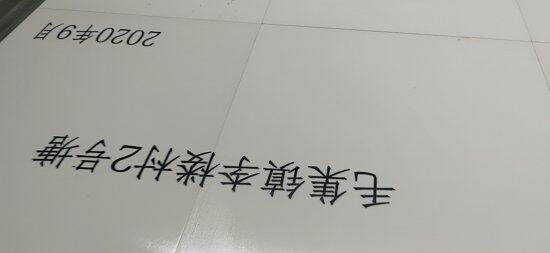 毛集镇李楼村2号塘
2020年9月